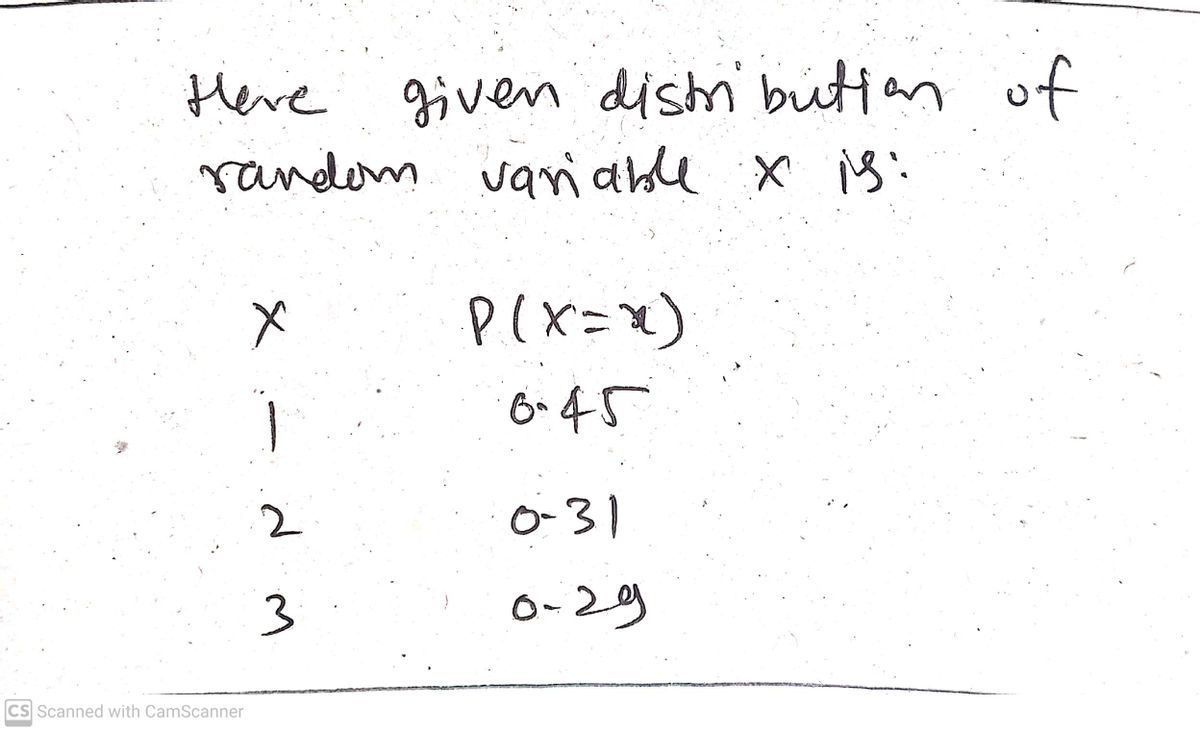 Here given distribution of
random variable X is:
X P(X=x)
1 0.45
2 0-31
3 0-29
CS Scanned with CamScanner